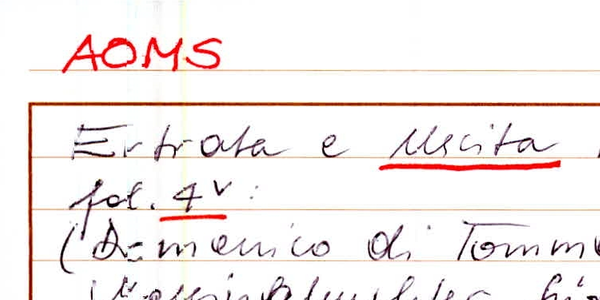 AOMS
Entrata e Uscita
fol. 4v:
(Domenico di Tomm